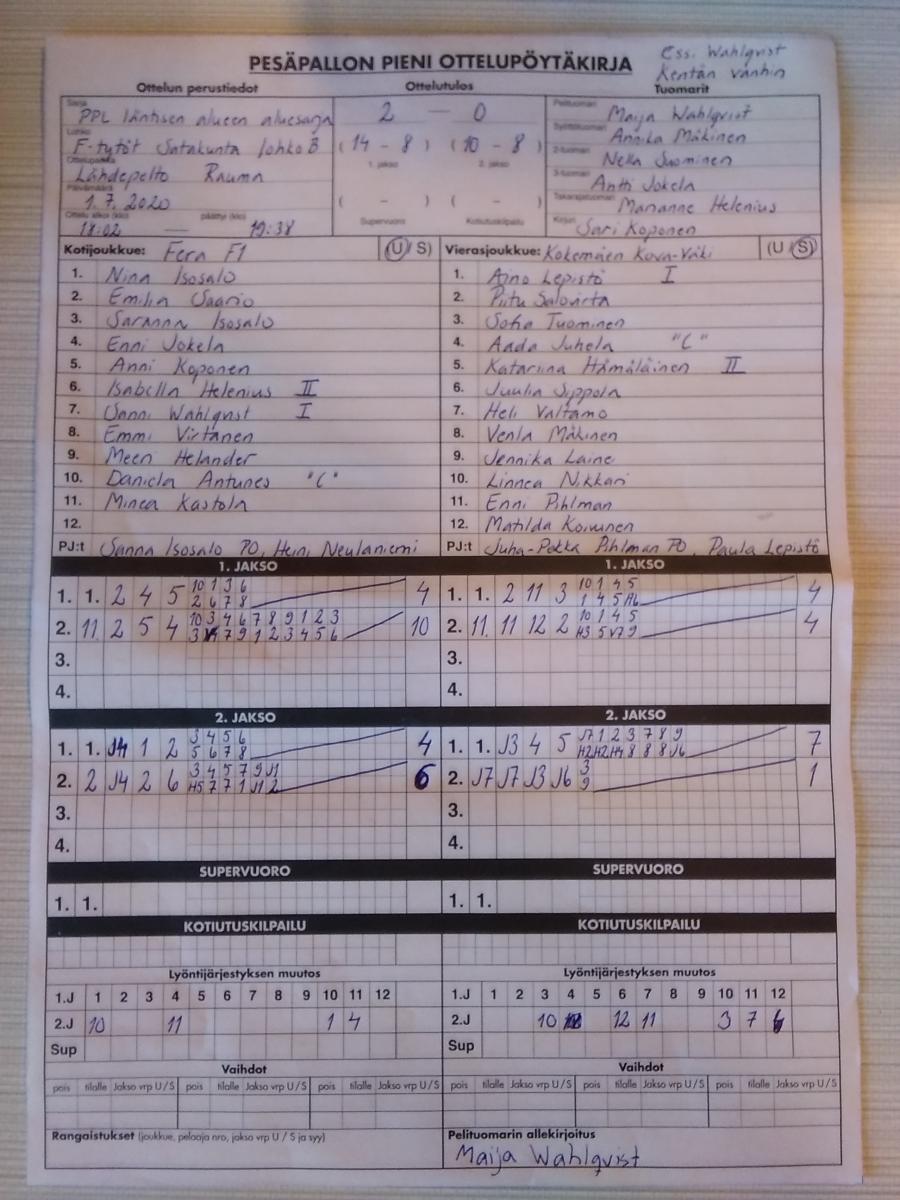 Ess. Wahlqvist
PESÄPALLON PIENI OTTELUPÖYTÄKIRJA Kentän vanhin
Ottelun perustiedot Ottelutulos Tuomarit
Sarja PPL läntisen alueen aluesarja 2 — 0 Pelituomari Maija Wahlqvist
Lohko F-tytöt Satakunta lohko B (14 - 8) (10 - 8) Syöttötuomari Annika Mäkinen
Ottelupaikka Lähdepelto Rauma 1. jakso 2. jakso 2-tuomari Nella Suominen
Päivämäärä 1.7.2020 ( - ) ( - ) 3-tuomari Antti Jokela
Ottelu alkoi (klo) 18:02 — päättyi (klo) 19:38 Supervuoro Kotiutuskilpailu Takarajatuomari Marianne Helenius
Kirjuri Sari Koponen
Kotijoukkue: Fera F1 (U / S) Vierasjoukkue: Kokemäen Kova-Väki (U / S)
1. Nina Isosalo 1. Aino Lepistö I
2. Emilia Saario 2. Piitu Salovirta
3. Saranna Isosalo 3. Sofia Tuominen
4. Enni Jokela 4. Aada Juhela "C"
5. Anni Koponen 5. Katariina Hämäläinen II
6. Isabella Helenius II 6. Juulia Sippola
7. Sanni Wahlqvist I 7. Heli Valtamo
8. Emmi Virtanen 8. Venla Mäkinen
9. Meeri Helander 9. Jennika Laine
10. Daniela Antunes "C" 10. Linnea Nikkari
11. Minea Kastola 11. Enni Pihlman
12. 12. Matilda Koivunen
PJ:t Sanna Isosalo PO, Heini Neulaniemi PJ:t Juha-Pekka Pihlman PO, Paula Lepistö
1. JAKSO 1. JAKSO
10 1 3 6 10 1 4 5
1. 1. 2 4 5 4 1. 1. 2 11 3 4
2 6 7 8 1 4 5 H6
10 3 4 6 7 8 9 1 2 3 10 1 4 5
2. 11 2 5 4 10 2. 11 11 12 2 4
3 7 9 1 2 3 4 5 6 H3 5 V7 9
3. 3.
4. 4.
2. JAKSO 2. JAKSO
3 4 5 6 J7 1 2 3 7 8 9
1. 1. J4 1 2 4 1. 1. J3 4 5 7
5 6 7 8 H2 H2 H4 8 8 8 J6
3 4 5 7 9 J1 3
2. 2 J4 2 6 6 2. J7 J7 J3 J6 1
H5 7 7 1 J1 2 9
3. 3.
4. 4.
SUPERVUORO SUPERVUORO
1. 1. 1. 1.
KOTIUTUSKILPAILU KOTIUTUSKILPAILU
Lyöntijärjestyksen muutos Lyöntijärjestyksen muutos
1.J 1 2 3 4 5 6 7 8 9 10 11 12 1.J 1 2 3 4 5 6 7 8 9 10 11 12
2.J 10 11 1 4 2.J 10 12 11 3 7 6
Sup Sup
Vaihdot Vaihdot
pois tilalle Jakso vrp U / S pois tilalle Jakso vrp U / S pois tilalle Jakso vrp U / S pois tilalle Jakso vrp U / S pois tilalle Jakso vrp U / S pois tilalle Jakso vrp U / S
Rangaistukset (joukkue, pelaaja nro, jakso vrp U / S ja syy) Pelituomarin allekirjoitus
Maija Wahlqvist